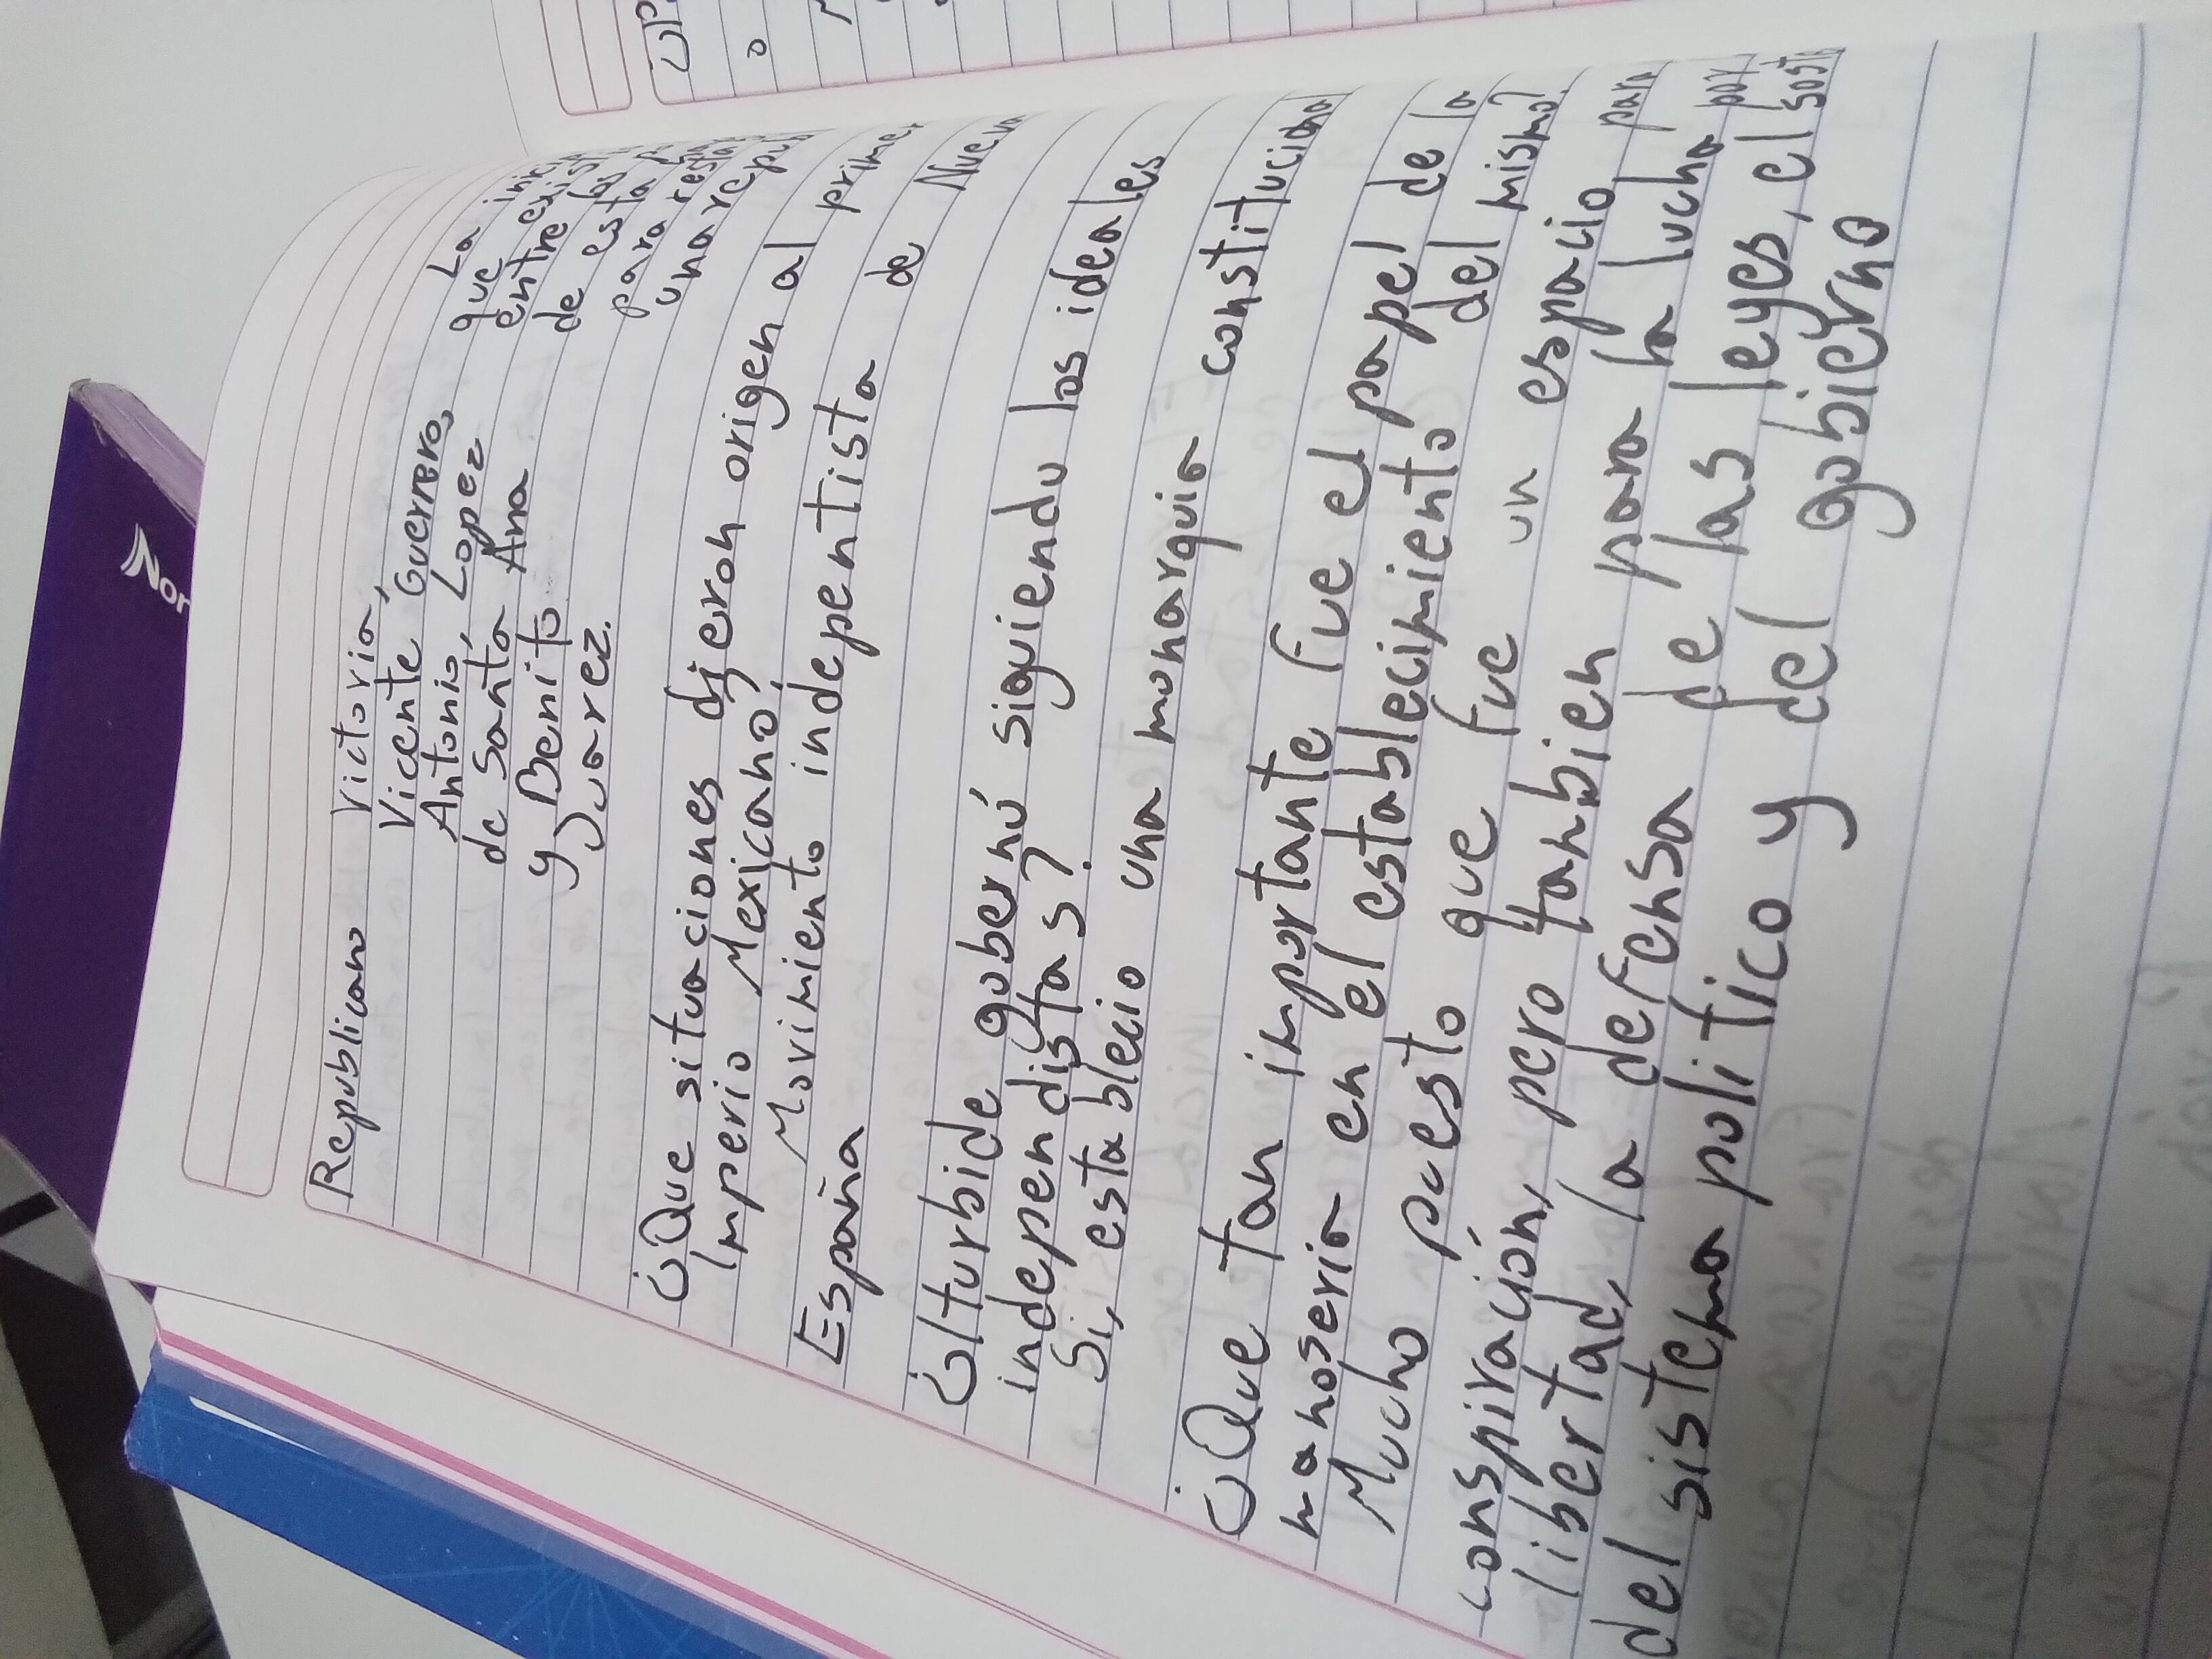 Republicano Victoria,
Vicente Guerrero,
Antonio, Lopez
de Santa Ana
y Benito
Juarez.
La
que
entre
de esta
para
una
¿Que situaciones djeron origen al
Imperio Mexicano?
Movimiento indepentista de
España
¿Iturbide gobernó siguiendo los ideales
independistas?
Si, establecio una monarquia
¿Que tan importante fue el papel de la
manoseria en el establecimiento del mismo?
Mucho puesto que fue un espacio
conspiración, pero tanbien para la lucha
libertad, la defensa de las leyes, el
del sistema politico y del gobierno
Nor